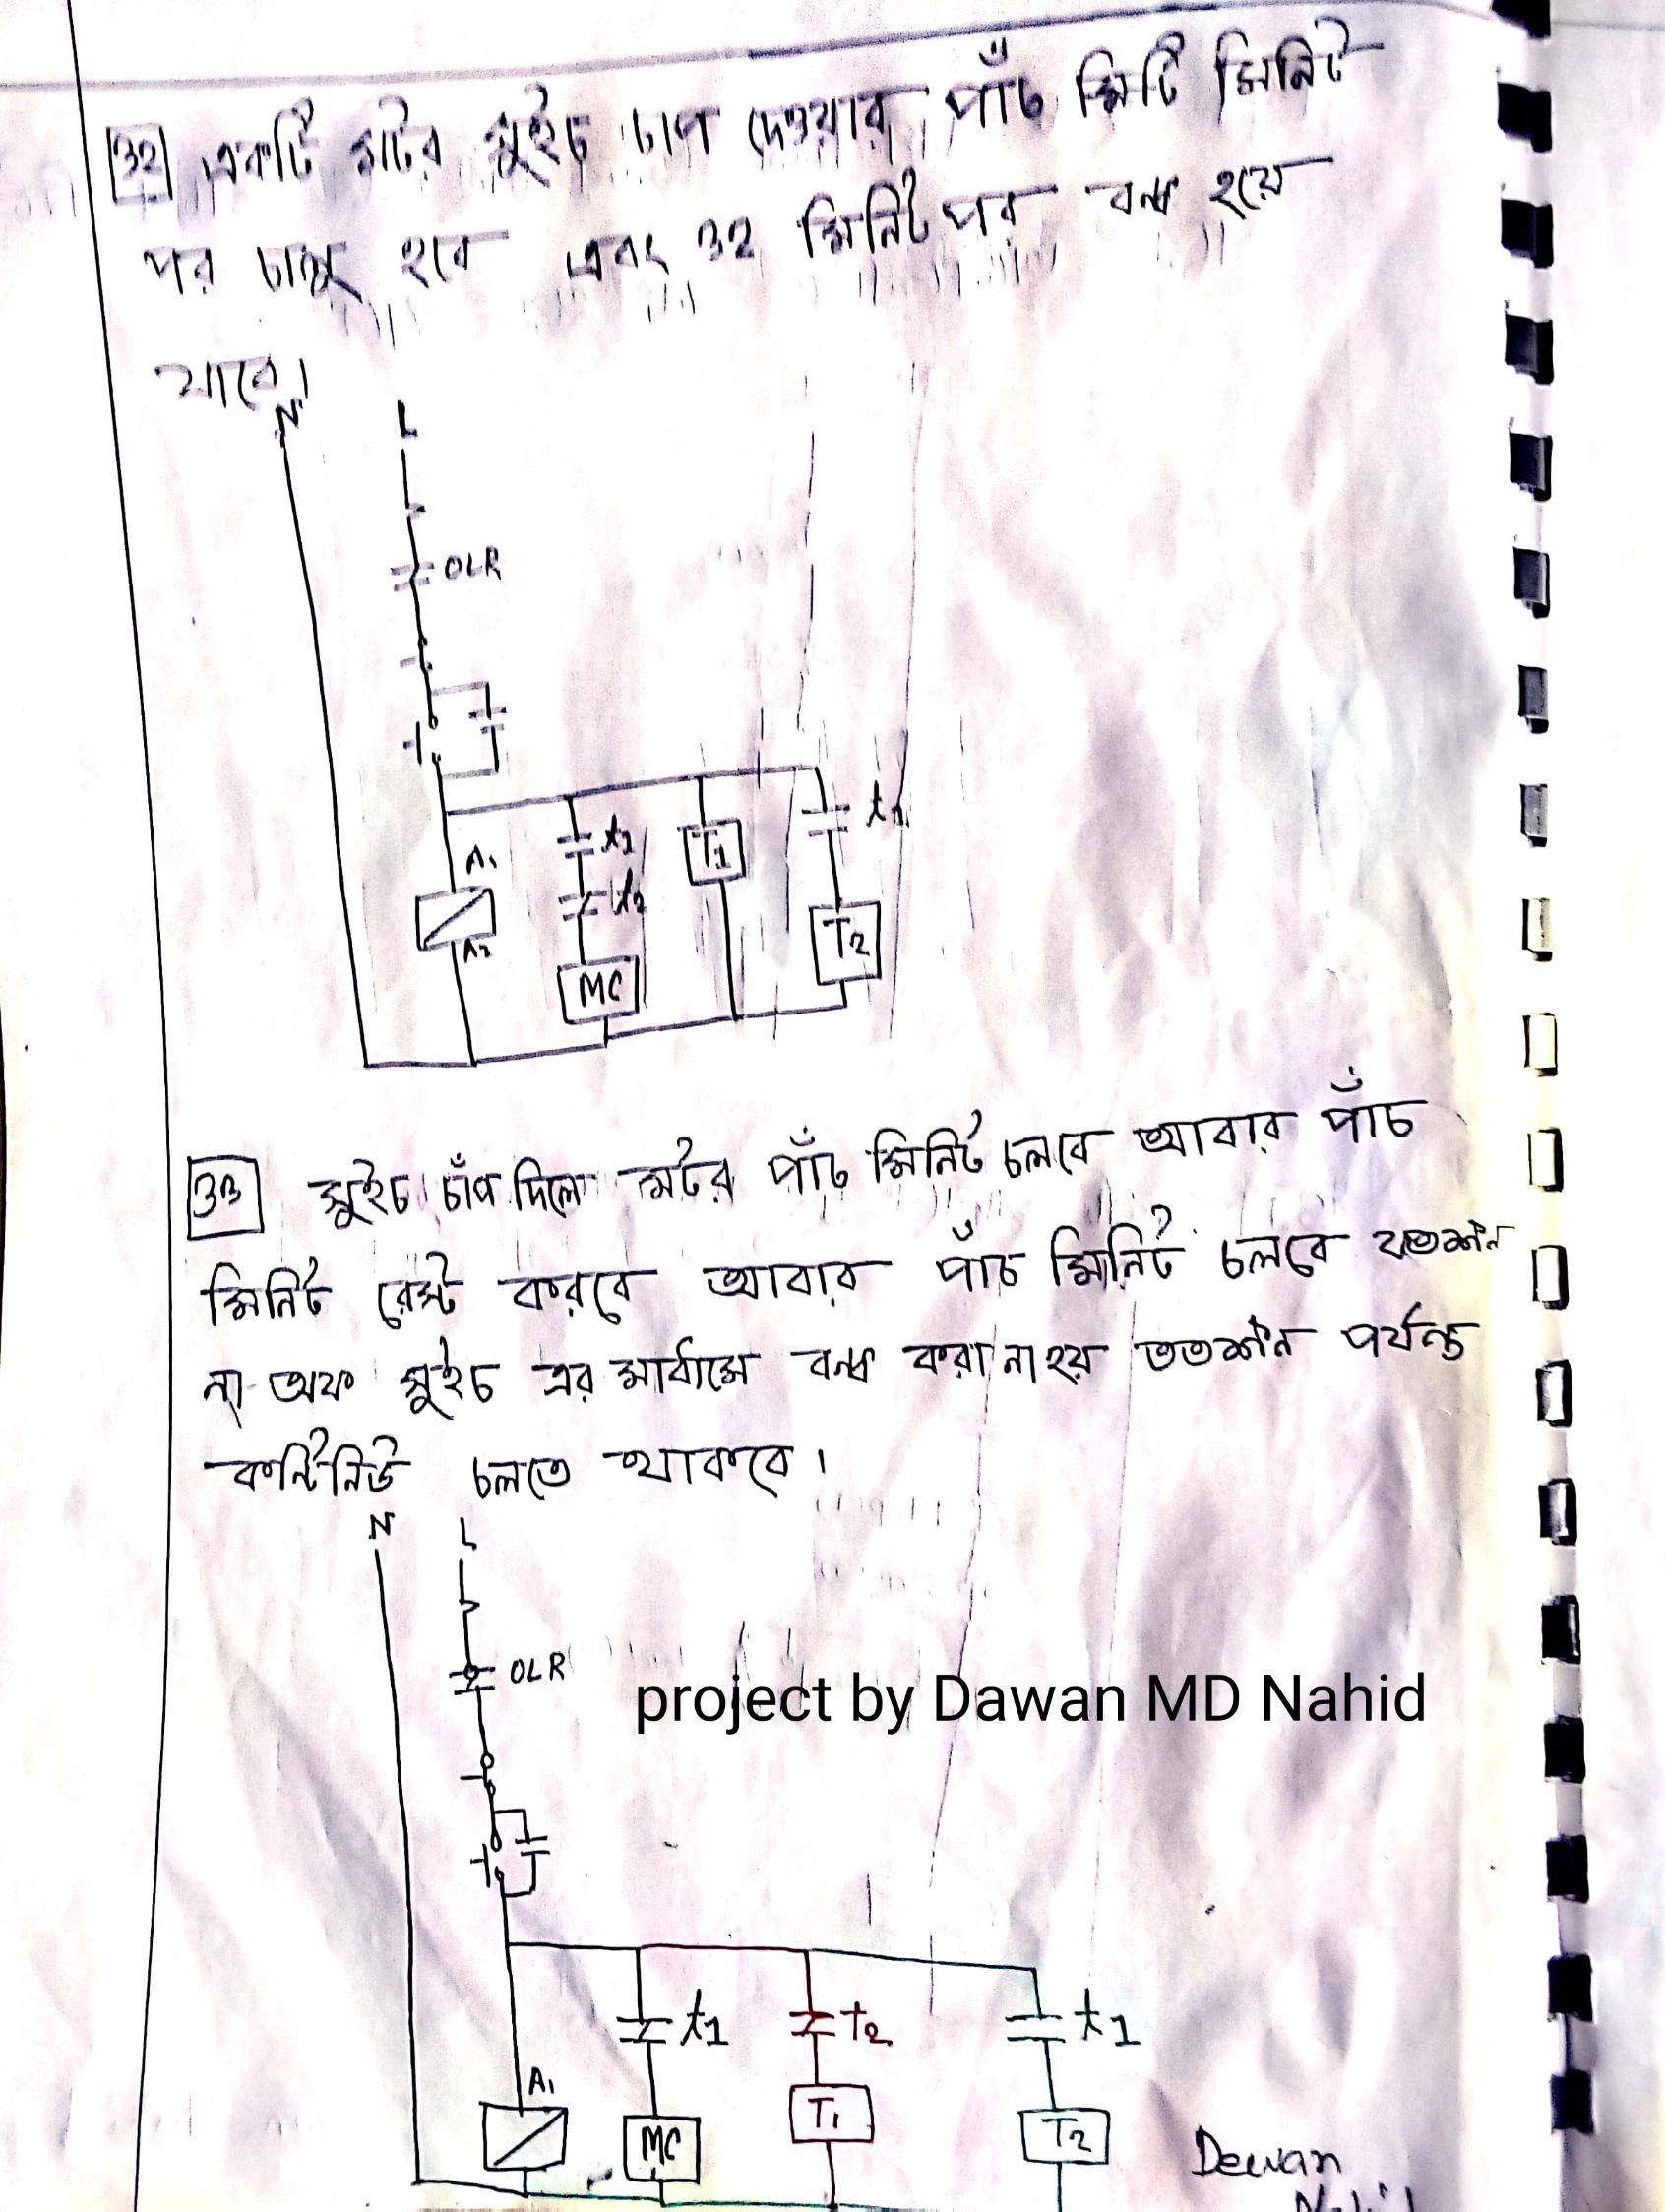 32 একটি মটর সুইচ চাপ দেওয়ার পাঁচ মিটি মিনিট
পর চালু হবে এবং 32 মিনিট পর বন্ধ হয়ে
যাবে।
N L
OLR
A1 t1 T1 t1
t2
A2 MC T2
33 সুইচ চাঁপ দিলে মটর পাঁচ মিনিট চলবে আবার পাঁচ
মিনিট রেস্ট করবে আবার পাঁচ মিনিট চলবে যতক্ষন
না অফ সুইচ এর মাধ্যমে বন্ধ করা না হয় ততক্ষন পর্যন্ত
কন্টিনিউ চলতে থাকবে।
N L
OLR
project by Dawan MD Nahid
t1 t2 t1
A1 MC T1 T2
Dewan
Nahid